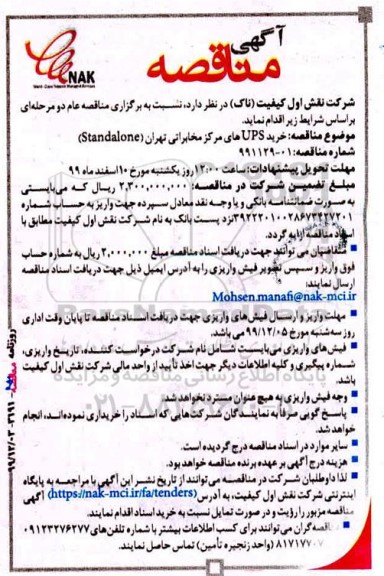 آگهی
مناقصه
NAK
شرکت نقش اول کیفیت (ناک) در نظر دارد، نسبت به برگزاری مناقصه عام دو مرحله‌ای
براساس شرایط زیر اقدام نماید.
موضوع مناقصه: خرید UPS های مرکز مخابراتی تهران (Standalone)
شماره مناقصه: 01-991129
مهلت تحویل پیشنهادات: ساعت 13:00 روز یکشنبه مورخ 10 اسفند ماه 99
مبلغ تضمین شرکت در مناقصه: 2,300,000,000 ریال که می‌بایستی
به صورت ضمانتنامه بانکی و یا وجه نقد معادل سپرده جهت واریز به حساب شماره
نزد پست بانک به نام شرکت نقش اول کیفیت مطابق با
اسناد مناقصه ارایه گردد.
متقاضیان می توانند جهت دریافت اسناد مناقصه مبلغ 2,000,000 ریال به شماره حساب
فوق واریز و سپس تصویر فیش واریزی را به آدرس ایمیل ذیل جهت دریافت اسناد مناقصه
ارسال نمایند:
Mohsen.manafi@nak-mci.ir
مهلت واریز و ارسال فیش های واریزی جهت دریافت اسناد مناقصه تا پایان وقت اداری
روز سه‌شنبه مورخ 99/12/05 می باشد.
فیش‌های واریزی می‌بایست شامل نام شرکت درخواست کننده، تاریخ واریزی،
شماره پیگیری و کلیه اطلاعات دیگر جهت اخذ تأیید از واحد مالی شرکت نقش اول کیفیت
باشد.
وجه فیش واریزی به هیچ عنوان مسترد نخواهد شد.
پاسخ گویی صرفاً به نمایندگان شرکت‌هایی که اسناد را خریداری نموده‌اند، انجام
خواهد شد.
سایر موارد در اسناد مناقصه درج گردیده است.
هزینه درج آگهی بر عهده برنده مناقصه خواهد بود.
لذا داوطلبان شرکت در مناقصه می‌توانند از تاریخ نشر این آگهی با مراجعه به پایگاه
اینترنتی شرکت نقش اول کیفیت، به آدرس (https://nak-mci.ir/fa/tenders) آگهی
مناقصه مزبور را رؤیت و در صورت تمایل نسبت به خرید اسناد اقدام نمایند.
مناقصه‌گران می‌توانند برای کسب اطلاعات بیشتر با شماره تلفن‌های 09123276277
81717707 (واحد زنجیره تأمین) تماس حاصل نمایند.